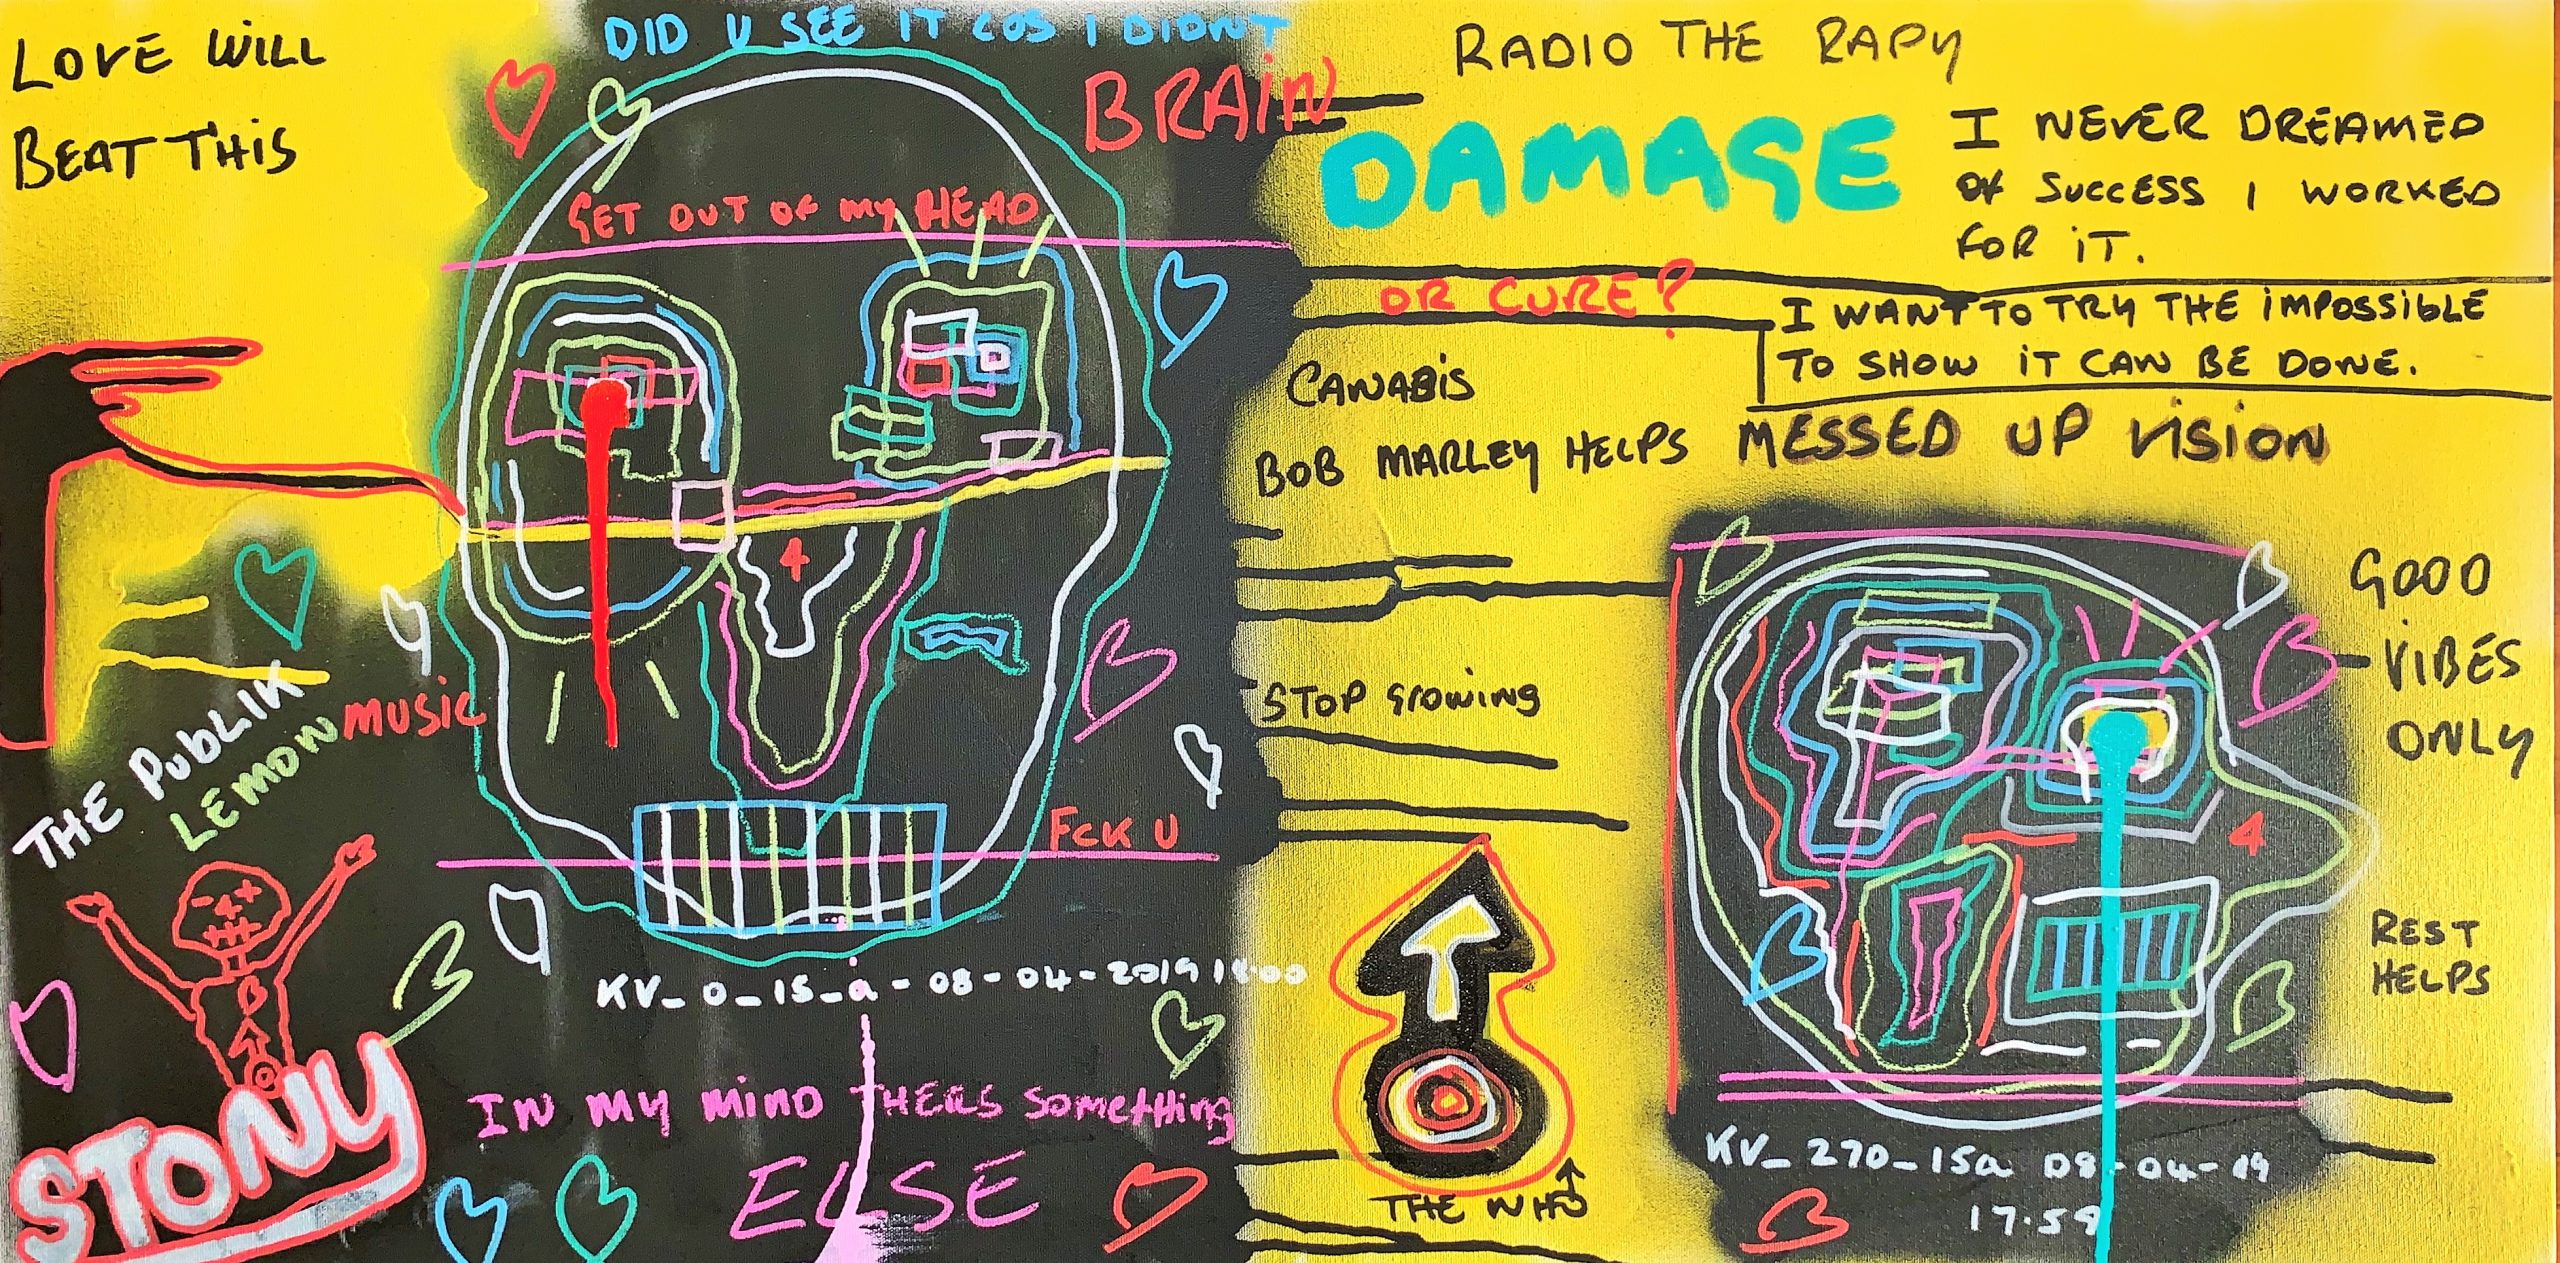 LOVE WILL
BEAT THIS
DID U SEE IT COS I DIDNT
BRAIN
GET OUT OF MY HEAD
RADIO THE RAPY
DAMAGE
OR CURE?
I NEVER DREAMED
OF SUCCESS I WORKED
FOR IT.
I WANT TO TRY THE IMPOSSIBLE
TO SHOW IT CAN BE DONE.
CANABIS
BOB MARLEY HELPS
MESSED UP VISION
4
STOP GROWING
GOOD
VIBES
ONLY
THE PUBLIK
LEMON MUSIC
FCK U
4
REST
HELPS
KV_0_15_a-08-04-2019 18:00
STONY
IN MY MIND THERS SOMETHING
ELSE
THE WHO
KV_270_15a 08-04-19
17.59